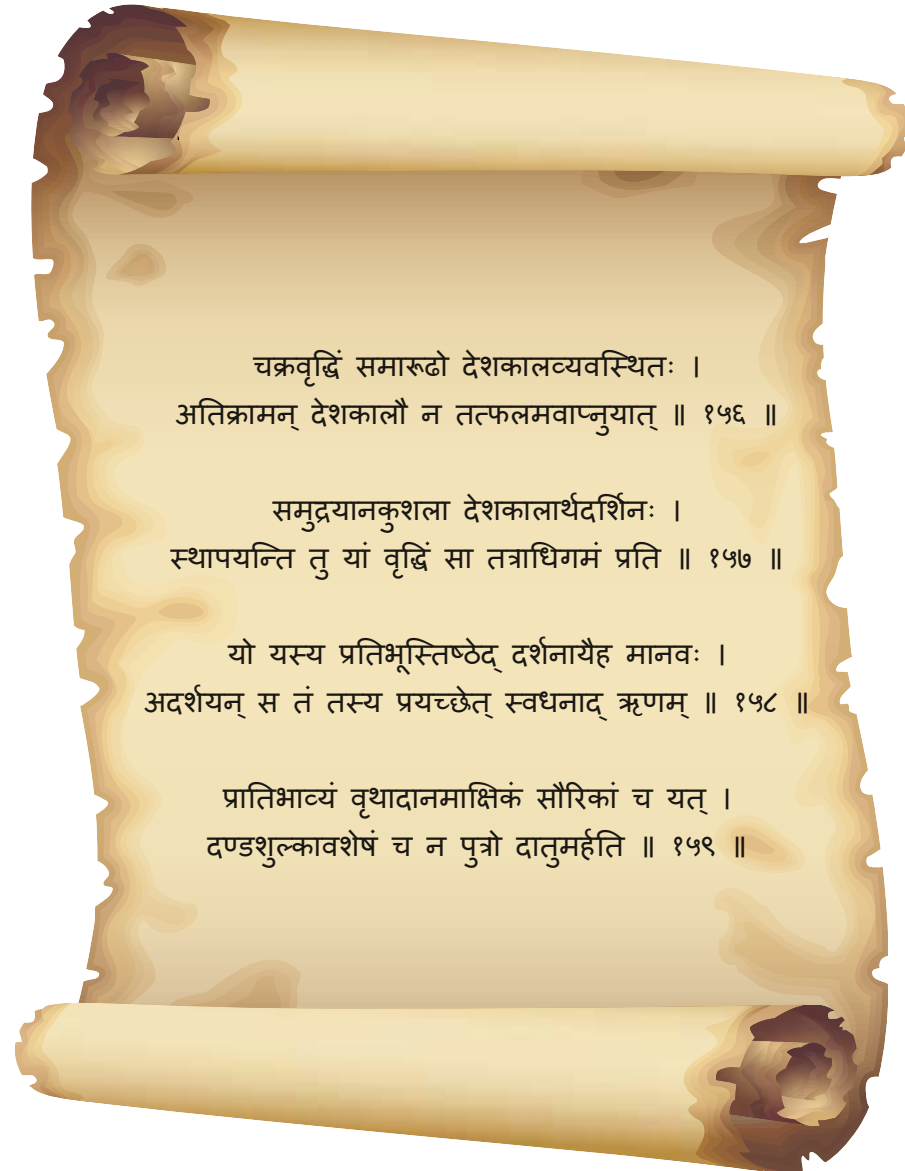 चक्रवृद्धिं समारूढो देशकालव्यवस्थितः ।
अतिक्रामन् देशकालौ न तत्फलमवाप्नुयात् ॥ १५६ ॥
समुद्रयानकुशला देशकालार्थदर्शिनः ।
स्थापयन्ति तु यां वृद्धिं सा तत्राधिगमं प्रति ॥ १५७ ॥
यो यस्य प्रतिभूस्तिष्ठेद् दर्शनायैह मानवः ।
अदर्शयन् स तं तस्य प्रयच्छेत् स्वधनाद् ऋणम् ॥ १५८ ॥
प्रातिभाव्यं वृथादानमाक्षिकं सौरिकां च यत् ।
दण्डशुल्कावशेषं च न पुत्रो दातुमर्हति ॥ १५९ ॥